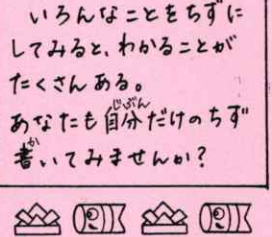 いろんなことをちずに
してみると、わかることが
たくさんある。
あなたも自分だけのちず
書いてみませんか?